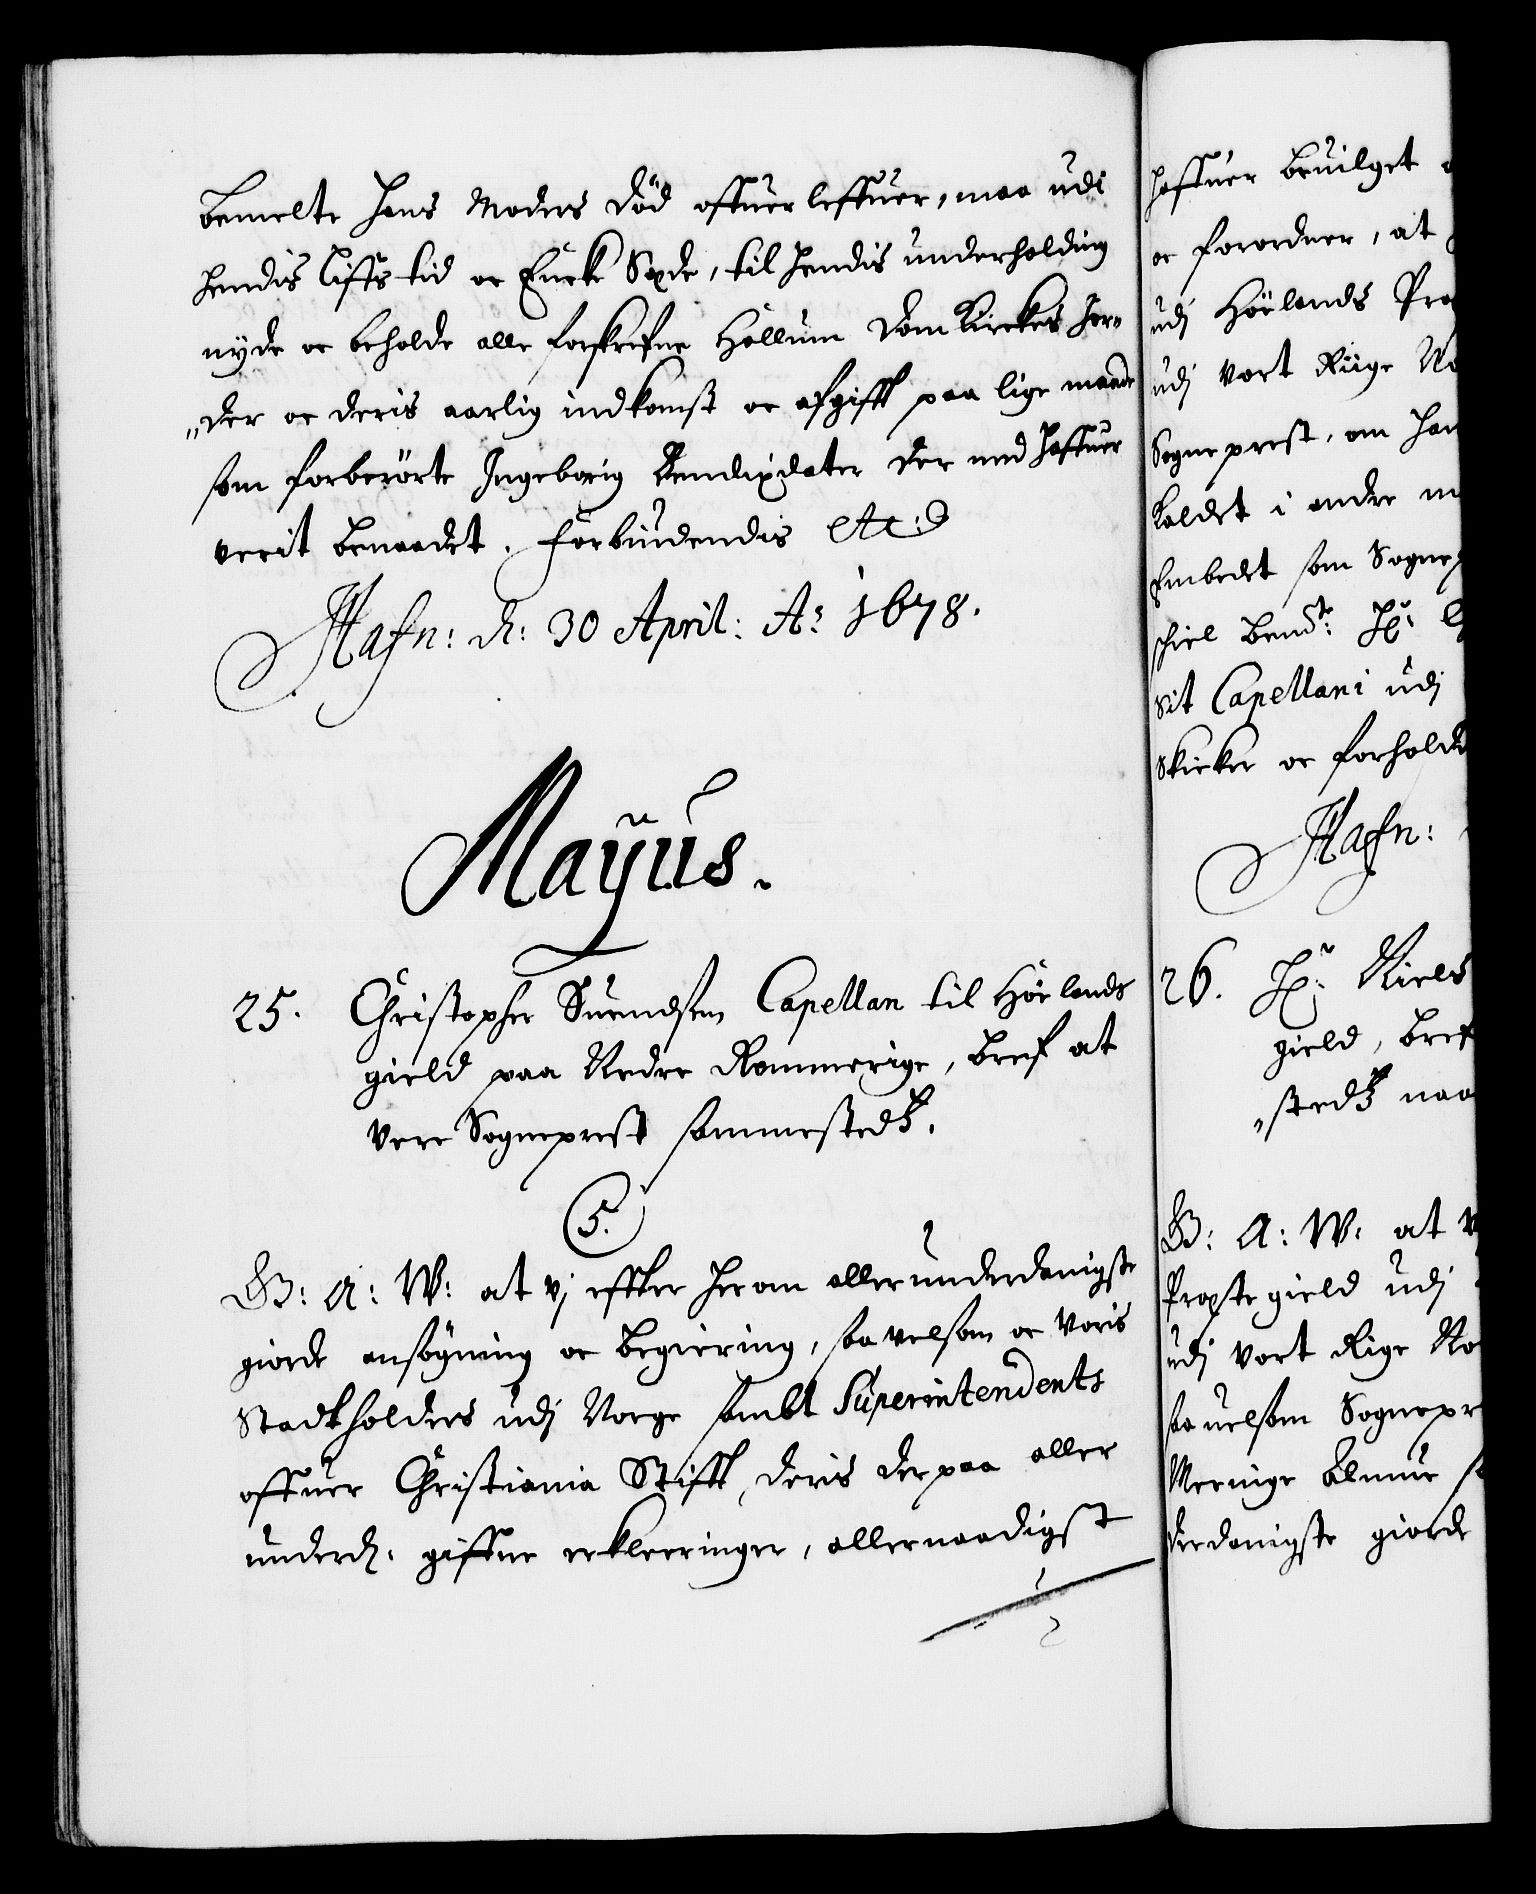 bemelte hans Moders Död offuerleffuer, maa udi
hendis Lifs tid oc Encke Sæde, til hendis underholding
nyde oc beholde alle forskrefne Hollum Dom Kirckes Jor„
„der oc deris aarlig indkomst oc afgifft paa lige maade
som forberörte Ingeborig Bendixdater der med haffuer
verit benaadet. Forbiudendis etc:
Hafn: d: 30 April: Aº 1678.
Mayus.
25. Christopher Suendsen Capellan til Höelands
gield paa Nedre Rommerige, bref at
vere Sogneprest sammestedtz.
5.
G: A: W: at vj effter her om allerunderdanigste
giorde ansögning oc begiering, saa velsom oc voris
Stadtholders udj Norge sambt Superintendents
offuer Christiania Stifft, deris der paa aller
underd: giffne erkleeringer, allernaadigst
haffuer beuilget
oc forordner, at
udj Höelands Pre
udj vort Riige No
Sogneprest, om han
Kaldet i andre m
Embedet som Sogne
skiel bemdte: Hr:
sit Capellani udj
skicker oc forholde
Hafn:
26. Hr: Niels
gield, bref
„stedtz naa
G: A: W: at v
Prestegield udj
udj vort Rige No
saauelsom Sognepr
Meenige Almue s
derdanigste giorde